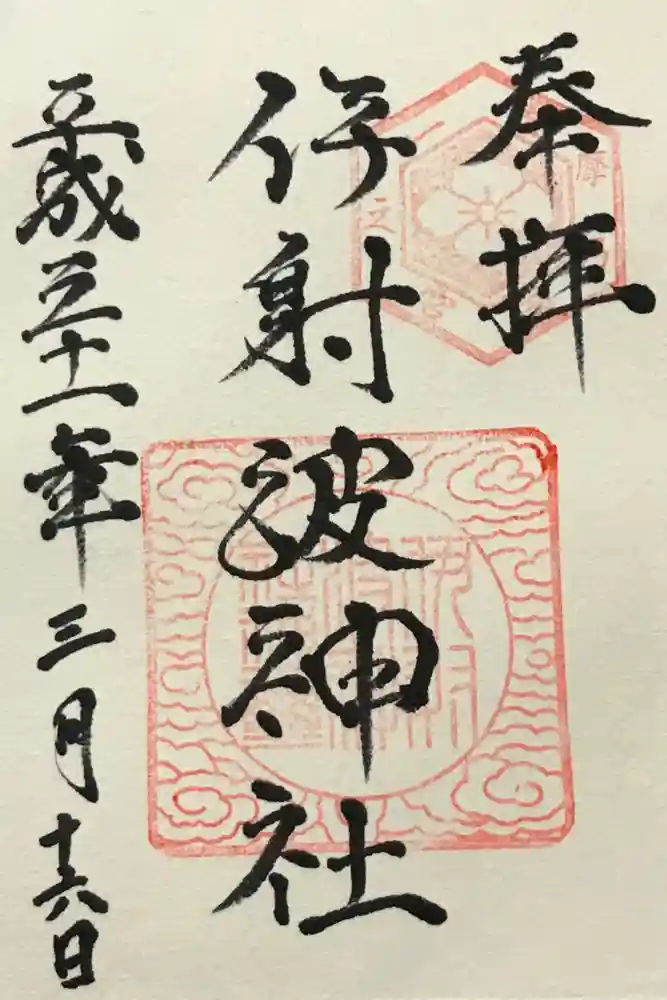 奉拝
摩
一之宮
伊射波神社
平成三十一年三月十六日